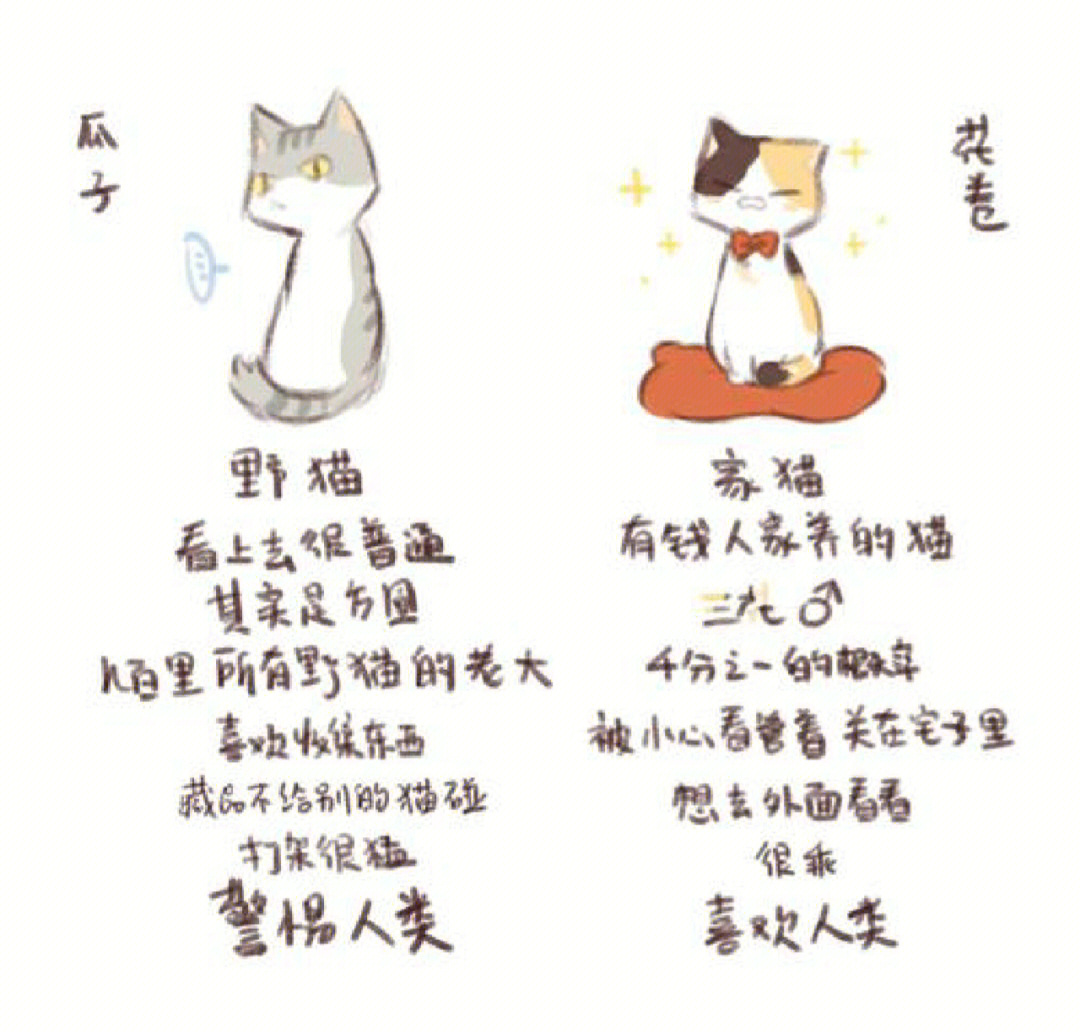 瓜子
野猫
看上去很普通
其实是方圆
几百里所有野猫的老大
喜欢收集东西
藏品不给别的猫碰
打架很猛
警惕人类
花卷
家猫
有钱人家养的猫
三花♂
4分之一的概率
被小心看管着关在宅子里
想去外面看看
很乖
喜欢人类